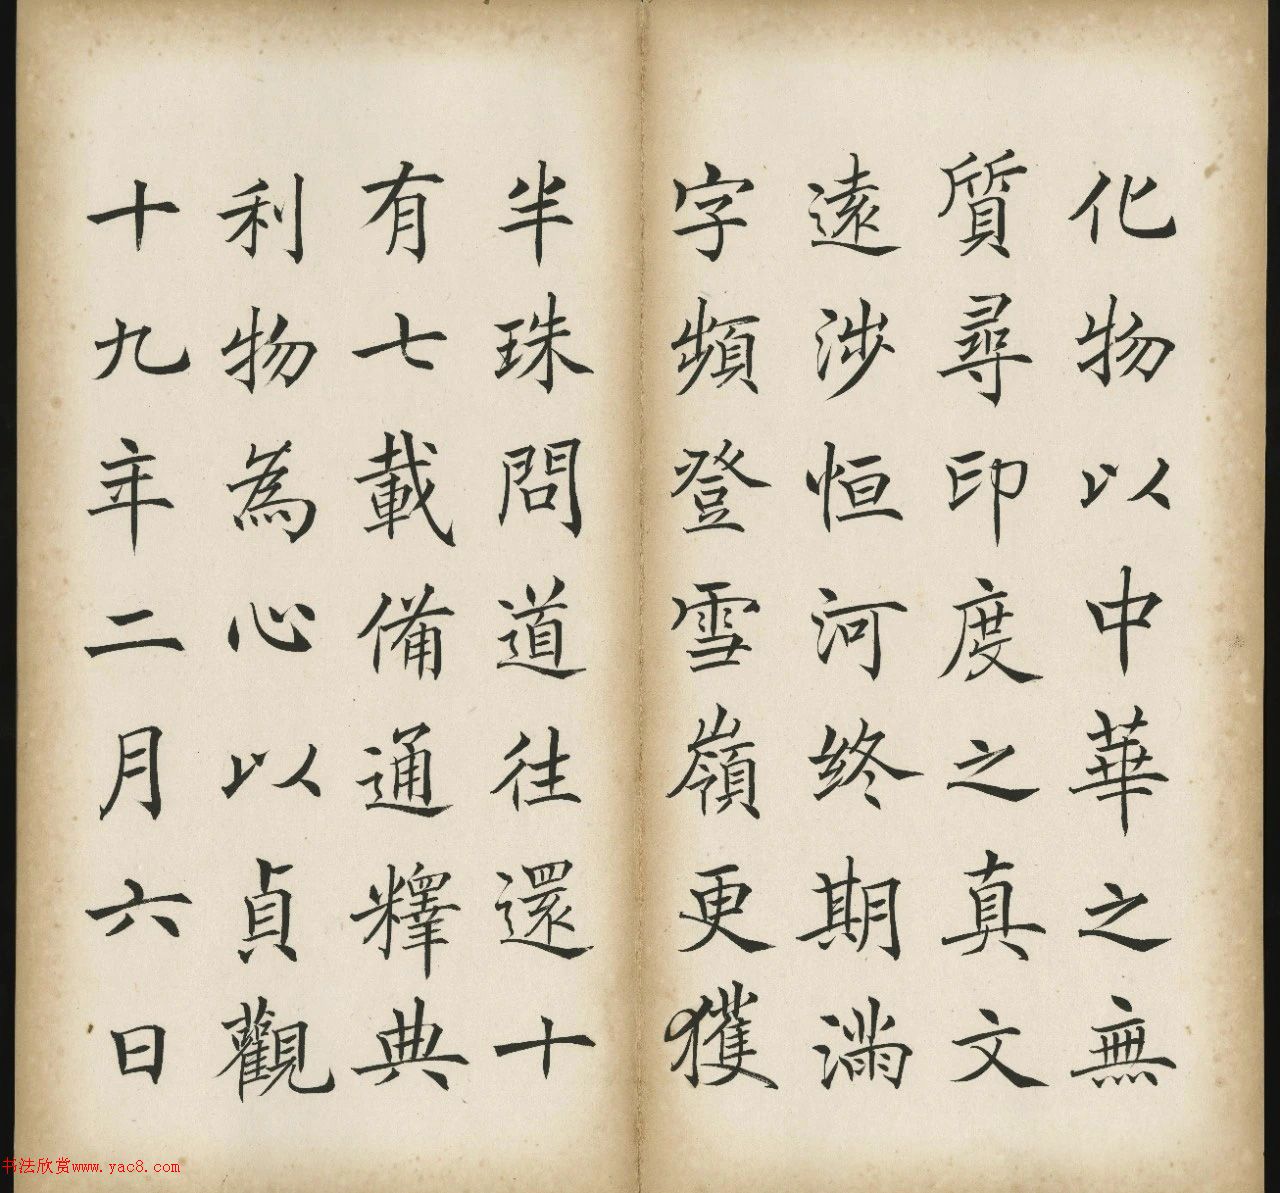 化物以中華之無
質尋印度之真文
遠涉恒河終期滿
字頻登雪嶺更獲
半珠問道往還十
有七載備通釋典
利物為心以貞觀
十九年二月六日
书法欣赏www.yac8.com